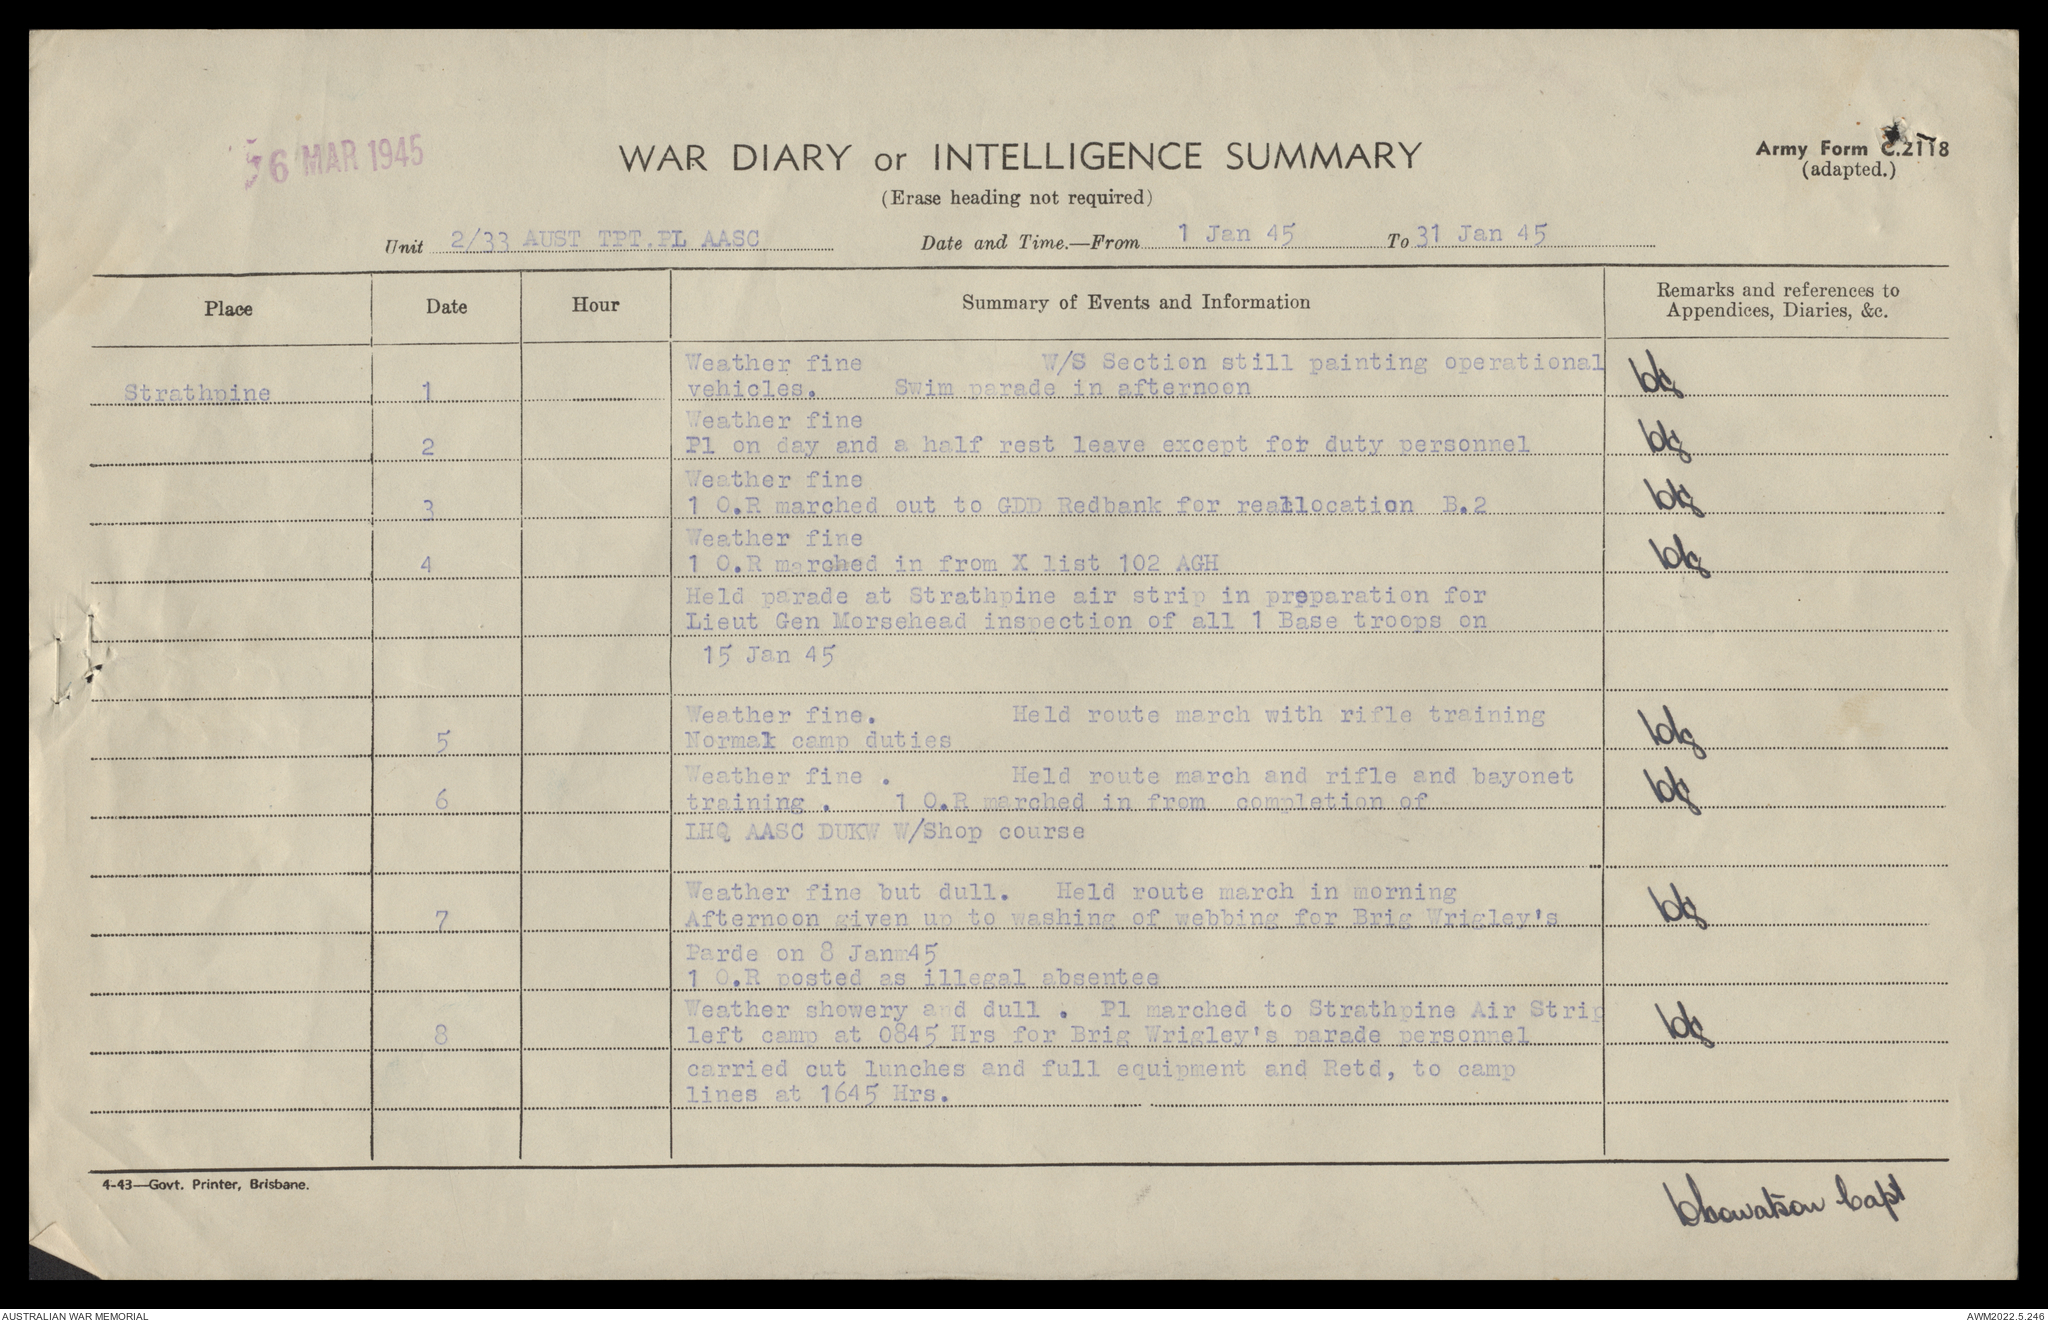 6 MAR 1945
WAR DIARY or INTELLIGENCE SUMMARY
Army Form C.2118
(adapted.)
(Erase heading not required)
Unit 2/33 AUST TPT.PL AASC Date and Time.—From 1 Jan 45 To 31 Jan 45
Place Date Hour Summary of Events and Information Remarks and references to
Appendices, Diaries, &c.
Weather fine W/S Section still painting operational
Strathpine 1 vehicles. Swim parade in afternoon
Weather fine
2 Pl on day and a half rest leave except for duty personnel
Weather fine
3 1 O.R marched out to GDD Redbank for reallocation B.2
Weather fine
4 1 O.R marched in from X list 102 AGH
Held parade at Strathpine air strip in preparation for
Lieut Gen Morsehead inspection of all 1 Base troops on
15 Jan 45
Weather fine. Held route march with rifle training
5 Normal camp duties
Weather fine . Held route march and rifle and bayonet
6 training . 1 O.R marched in from completion of
LHQ AASC DUKW W/Shop course
Weather fine but dull. Held route march in morning
7 Afternoon given up to washing of webbing for Brig Wrigley's
Parde on 8 Jan 45
1 O.R posted as illegal absentee
Weather showery and dull . Pl marched to Strathpine Air Strip
8 left camp at 0845 Hrs for Brig Wrigley's parade personnel
carried cut lunches and full equipment and Retd, to camp
lines at 1645 Hrs.
4-43—Govt. Printer, Brisbane.
Capt
AUSTRALIAN WAR MEMORIAL
AWM2022.5.246